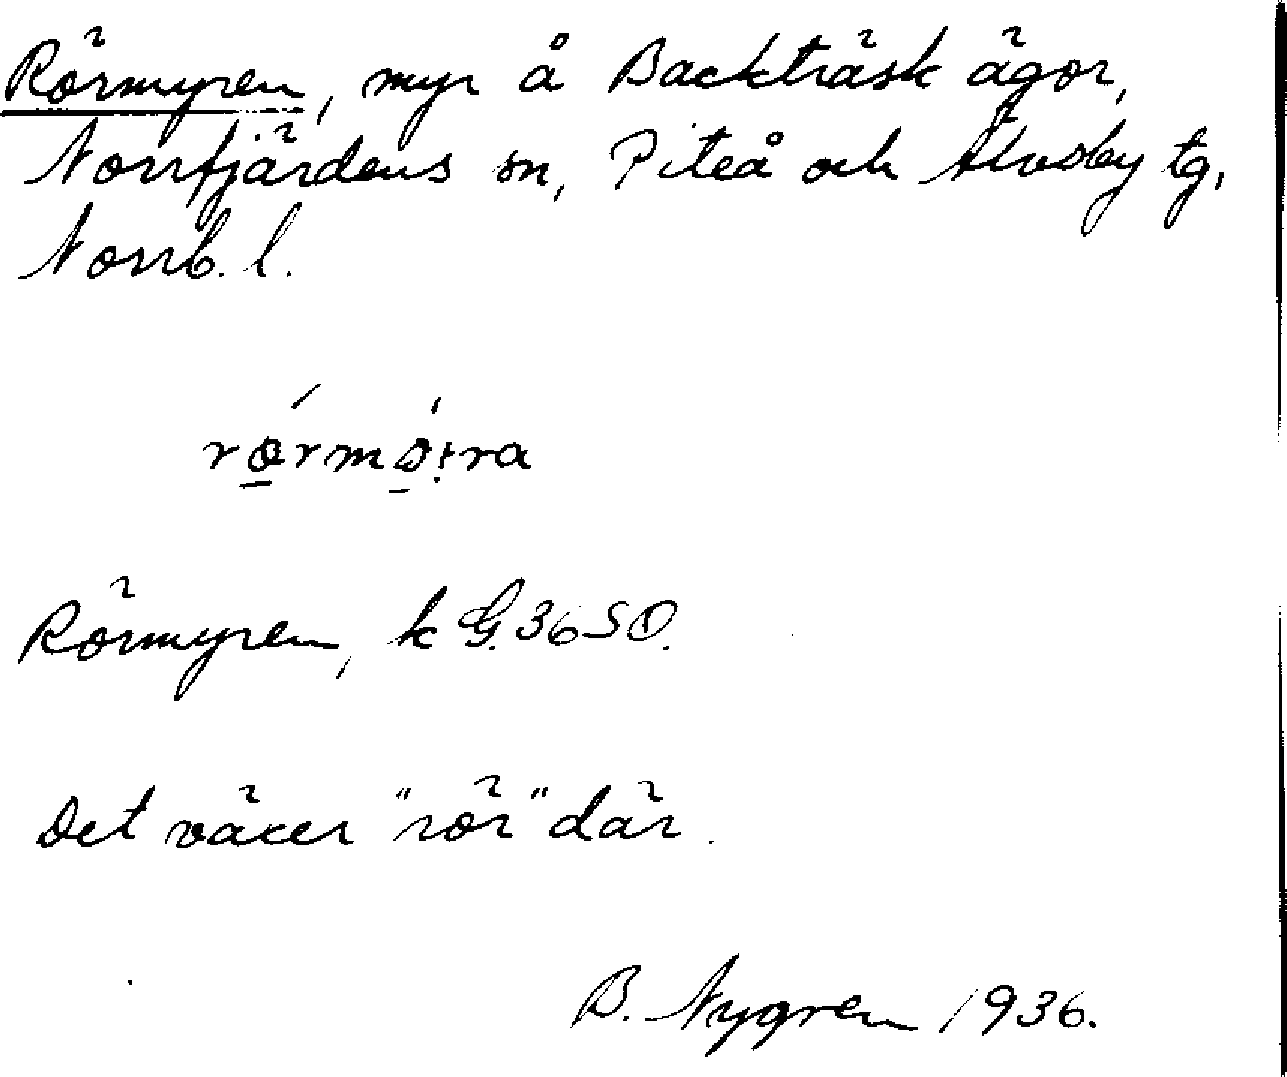 Rörmyren, myr å Backträsk ägor,
Norrfjärdens sn, Piteå och Älvsby tg,
Norrb. l.
rö̠́rmö̠́ṛra
Rörmyren, k G. 36 SO.
Det växer "rör" där.
B. Nygren 1936.